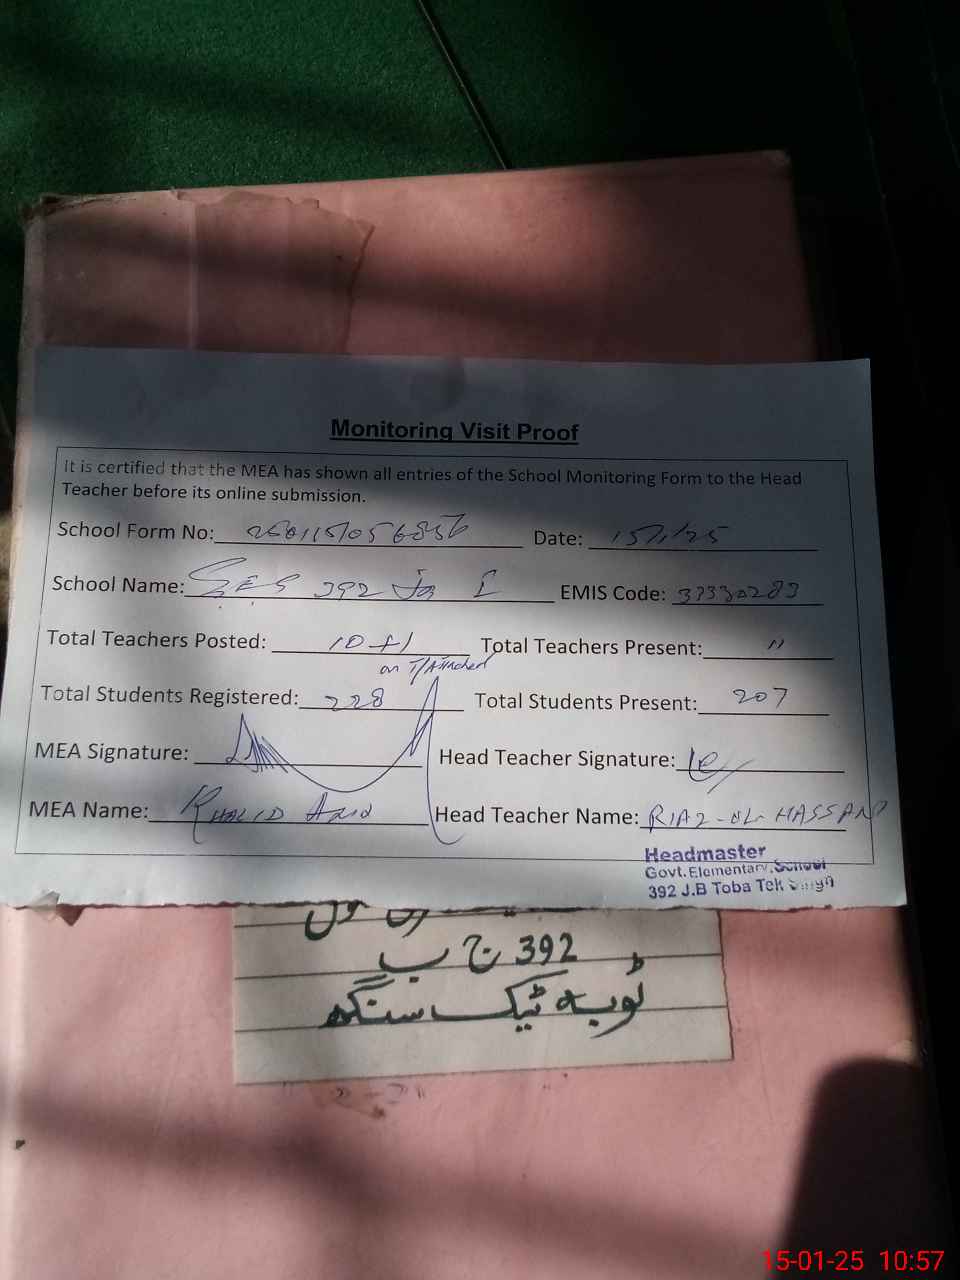 Monitoring Visit Proof
It is certified that the MEA has shown all entries of the School Monitoring Form to the Head
Teacher before its online submission.
School Form No: Date: 15/1/25
School Name: GES 392 JB I EMIS Code: 33330283
Total Teachers Posted: 10+1 Total Teachers Present: 11
on T/Attached
Total Students Registered: 228 Total Students Present: 207
MEA Signature: Head Teacher Signature:
MEA Name: KHALID Head Teacher Name: RIAZ-UL-HASSAN
Headmaster
Govt. Elementary School
392 J.B Toba Tek Singh
392 ج ب
ٹوبہ ٹیک سنگھ
15-01-25 10:57